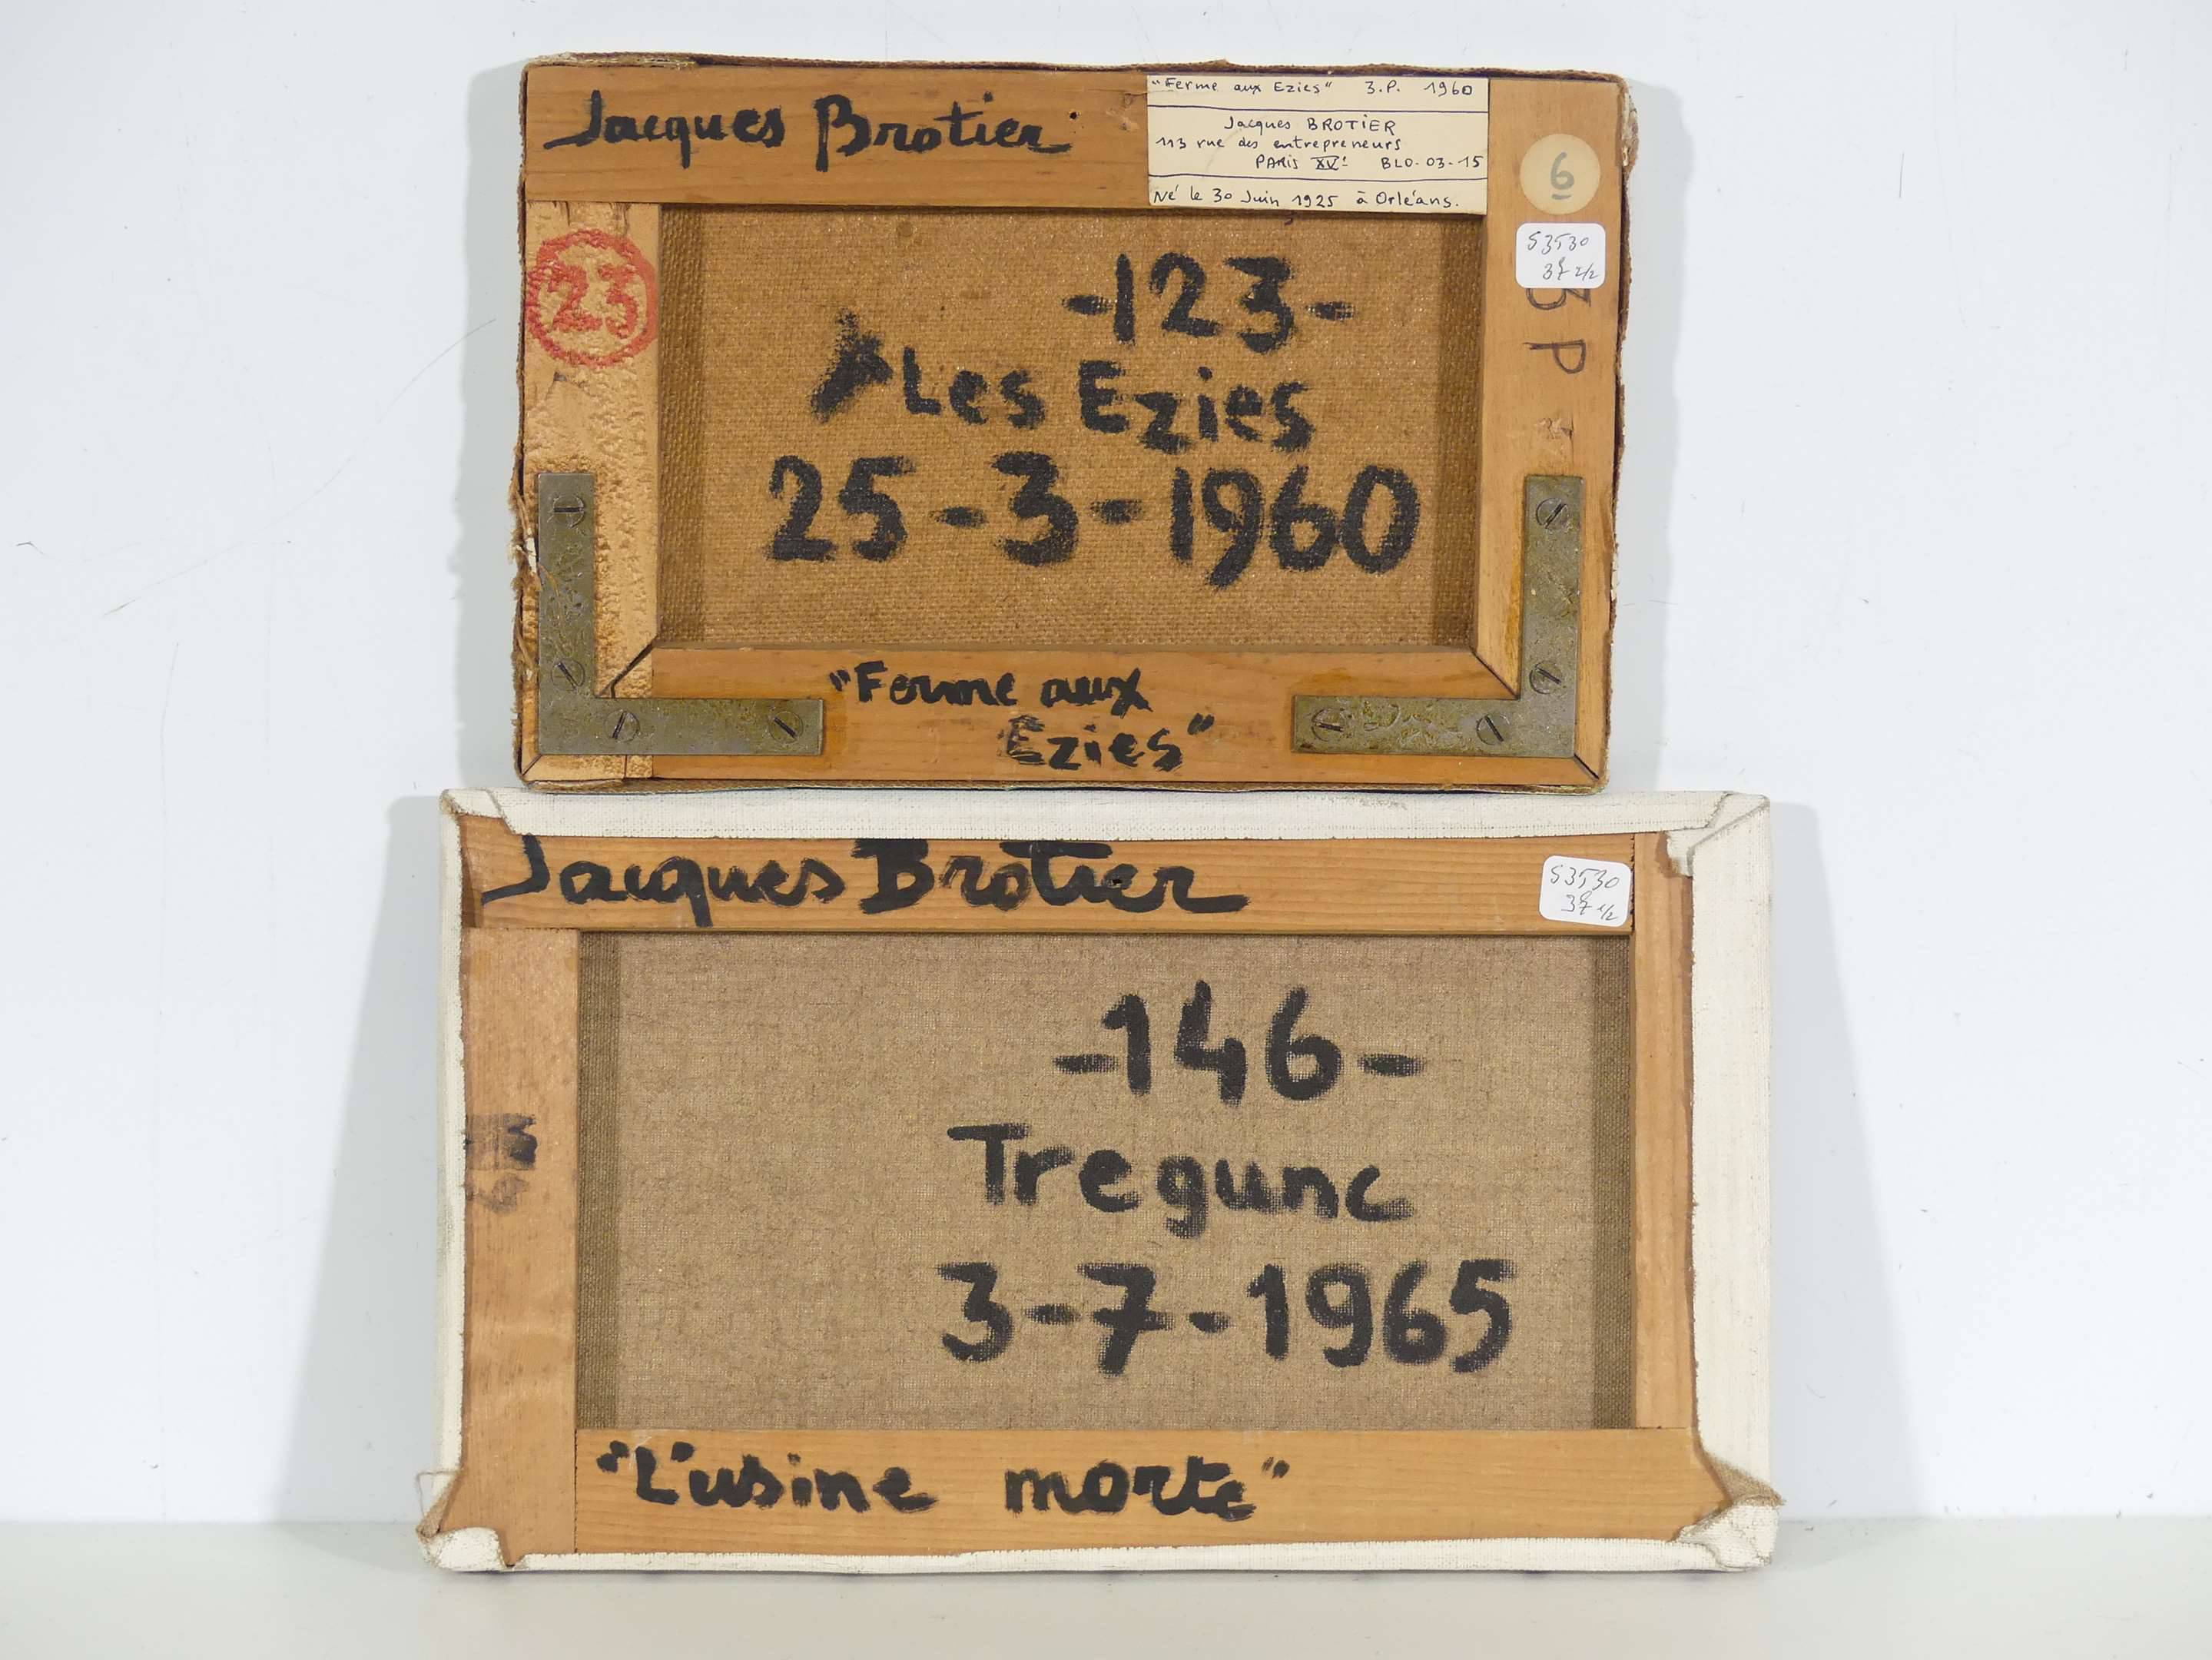 Jacques Brotier
"Ferme aux Ezies" 3.P. 1960
Jacques BROTIER
113 rue des entrepreneurs
PARIS XVe BLO-03-15
Né le 30 Juin 1925 à Orléans.
6
53530
3 P
23
-123-
Les Ezies
25-3-1960
"Ferme aux
Ezies"
Jacques Brotier
53530
-146-
Tregunc
3-7-1965
"L'usine morte"